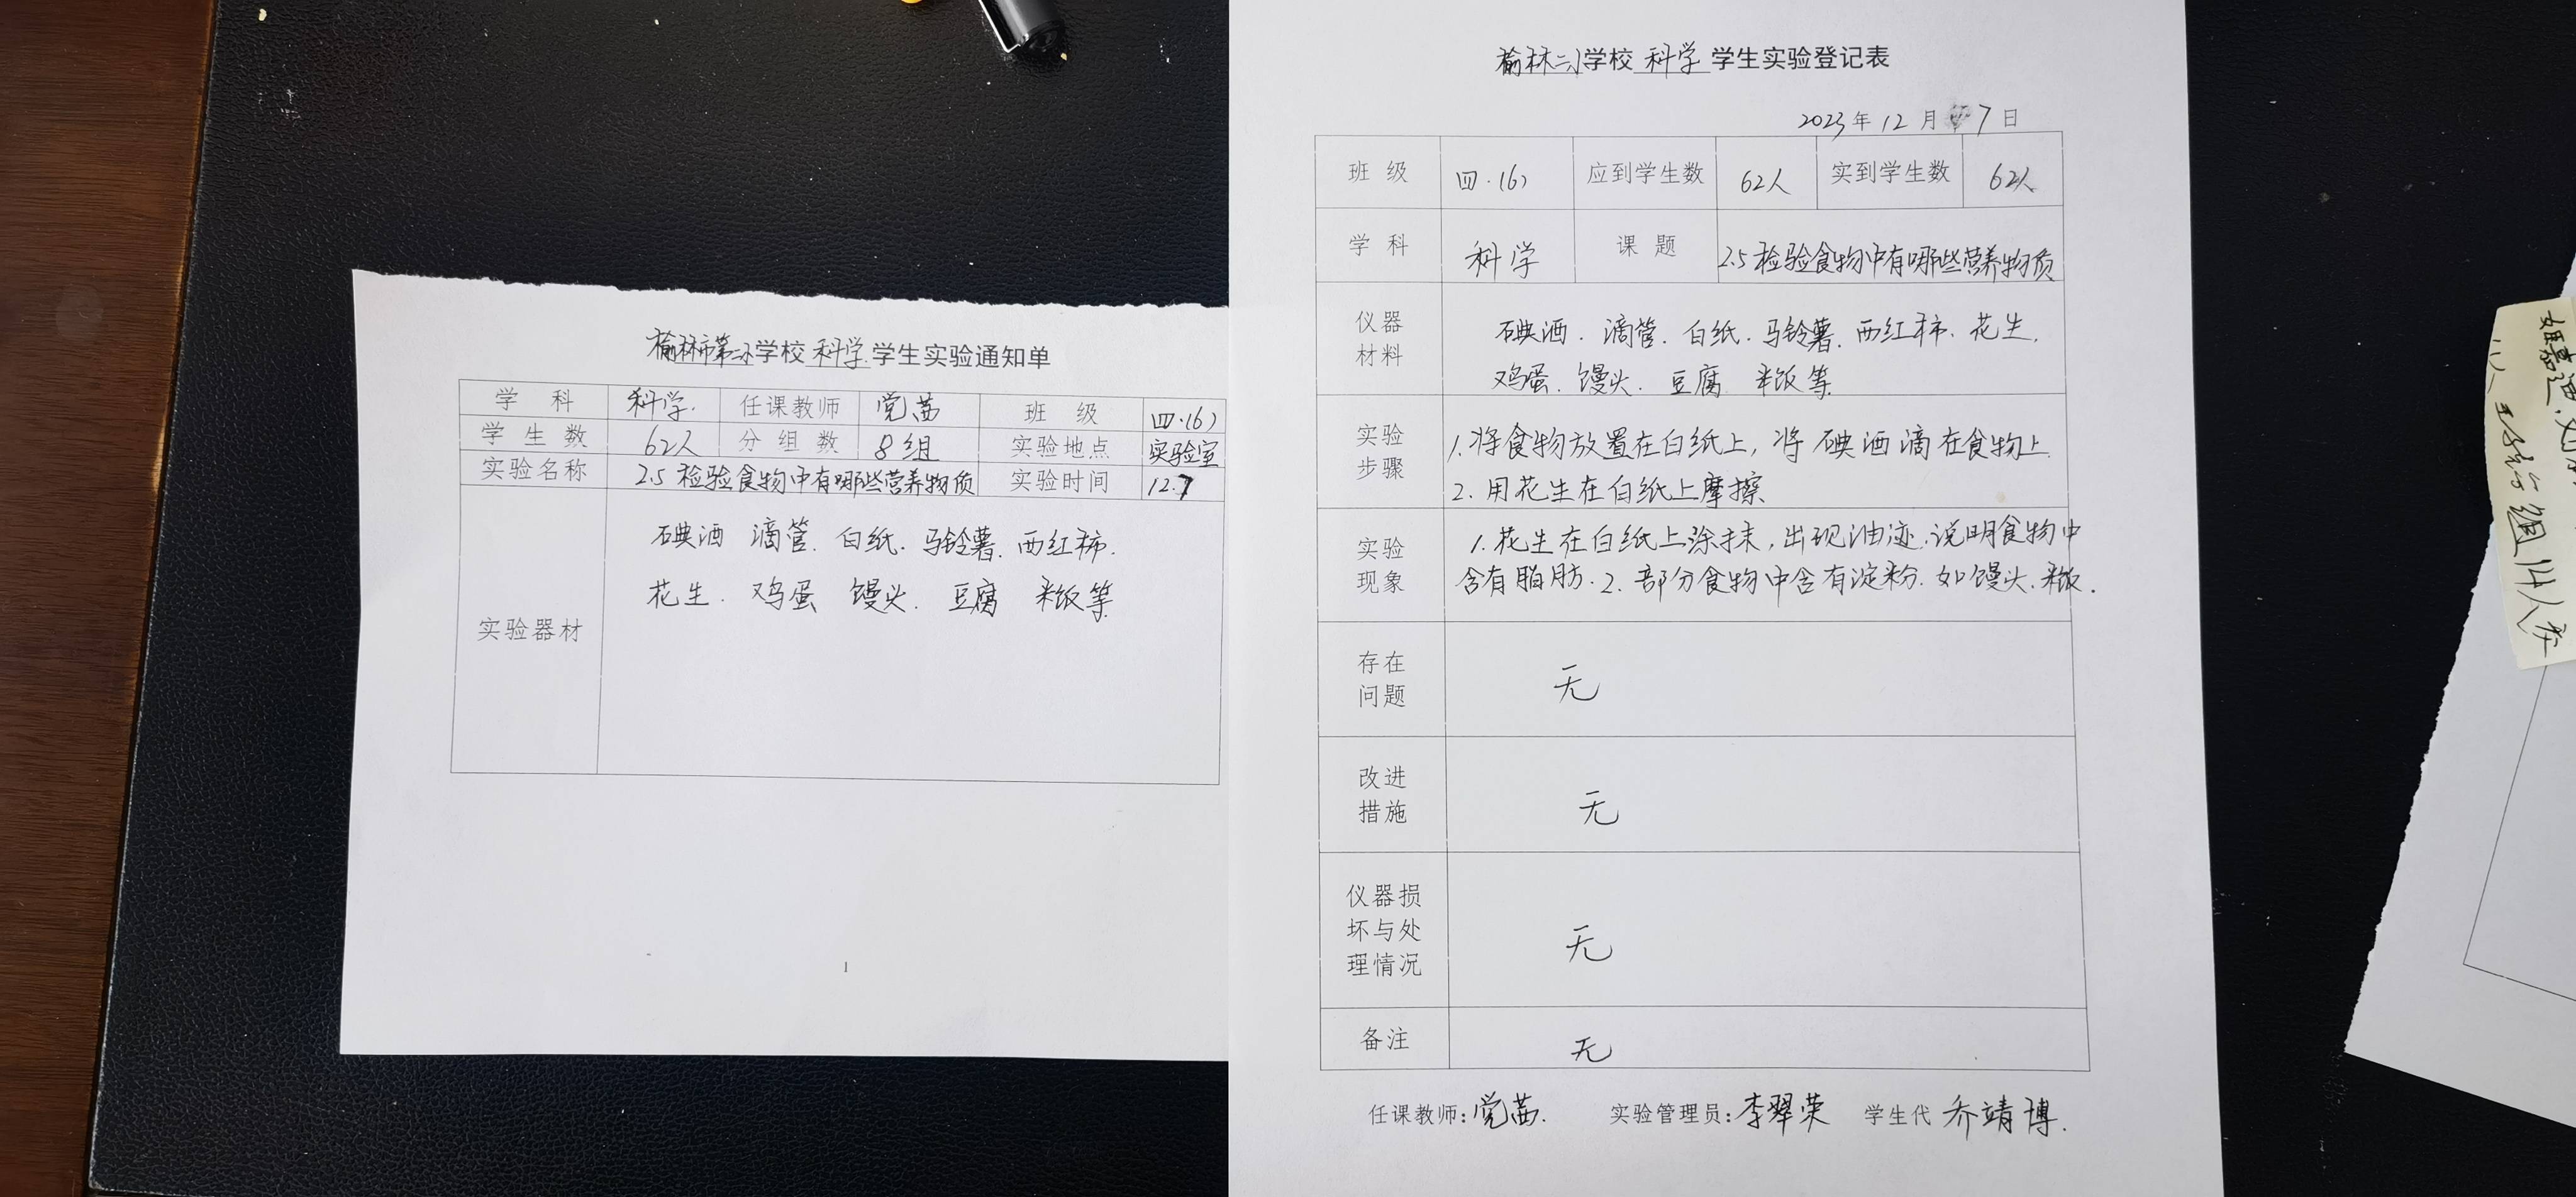 榆林市第二小学校 科学 学生实验通知单
学 科 科学. 任课教师 党茜 班 级 四.(6)
学 生 数 62人 分 组 数 8组 实验地点 实验室
实验名称 2.5 检验食物中有哪些营养物质 实验时间 12.7
碘酒 滴管. 白纸. 马铃薯. 西红柿.
花生. 鸡蛋 馒头. 豆腐 米饭等.
实验器材
1
榆林二小学校 科学 学生实验登记表
2023年12月7日
班 级 四.(6) 应到学生数 62人 实到学生数 62人
学 科 科学 课 题 2.5 检验食物中有哪些营养物质
仪器
材料
碘酒. 滴管. 白纸. 马铃薯. 西红柿. 花生.
鸡蛋. 馒头. 豆腐 米饭等.
实验
步骤
1. 将食物放置在白纸上, 将碘酒滴在食物上.
2. 用花生在白纸上摩擦
实验
现象
1. 花生在白纸上涂抹, 出现油迹. 说明食物中
含有脂肪. 2. 部分食物中含有淀粉. 如馒头. 米饭.
存在
问题
无
改进
措施
无
仪器损
坏与处
理情况
无
备注 无
任课教师: 党茜. 实验管理员: 李翠荣 学生代 乔靖博.
组14人